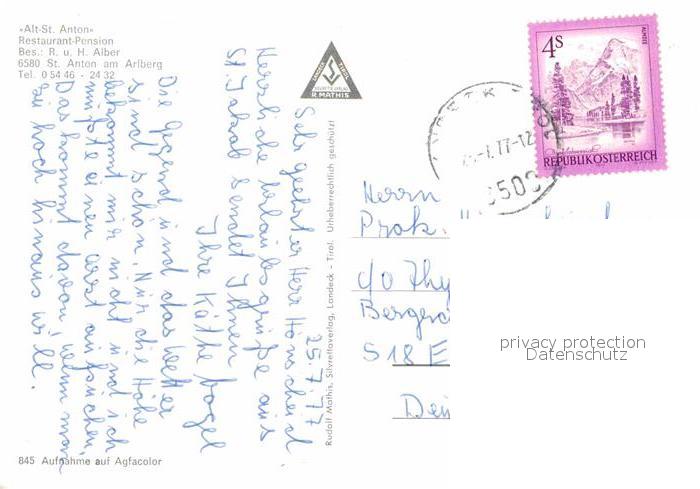 «Alt-St. Anton»
Restaurant-Pension
Bes.: R. u. H. Alber
6580 St. Anton am Arlberg
Tel. 0 54 46 - 24 32
25.7.77
Sehr geehrter Herr Hönscheid
Herzliche Urlaubsgrüße aus
St. Jakob sendet Ihnen
Ihre Käthe Vogel
Die Gegend und das Wetter
ist schon. Nur die Höhe
bekommt mir nicht und ich
müßte einen Arzt
Das kommt davon, wenn man
zu hoch hinaus will.
845 Aufnahme auf Agfacolor
Rudolf Mathis, Silvrettaverlag, Landeck - Tirol. Urheberrechtlich geschützt!
LANDECK TIROL
SILVRETTA-VERLAG
R. MATHIS
4S
ALMSEE
REPUBLIK ÖSTERREICH
77-12
6500
Herrn
Prok.
c/o Thy
Berger
518 E
privacy protection
Datenschutz